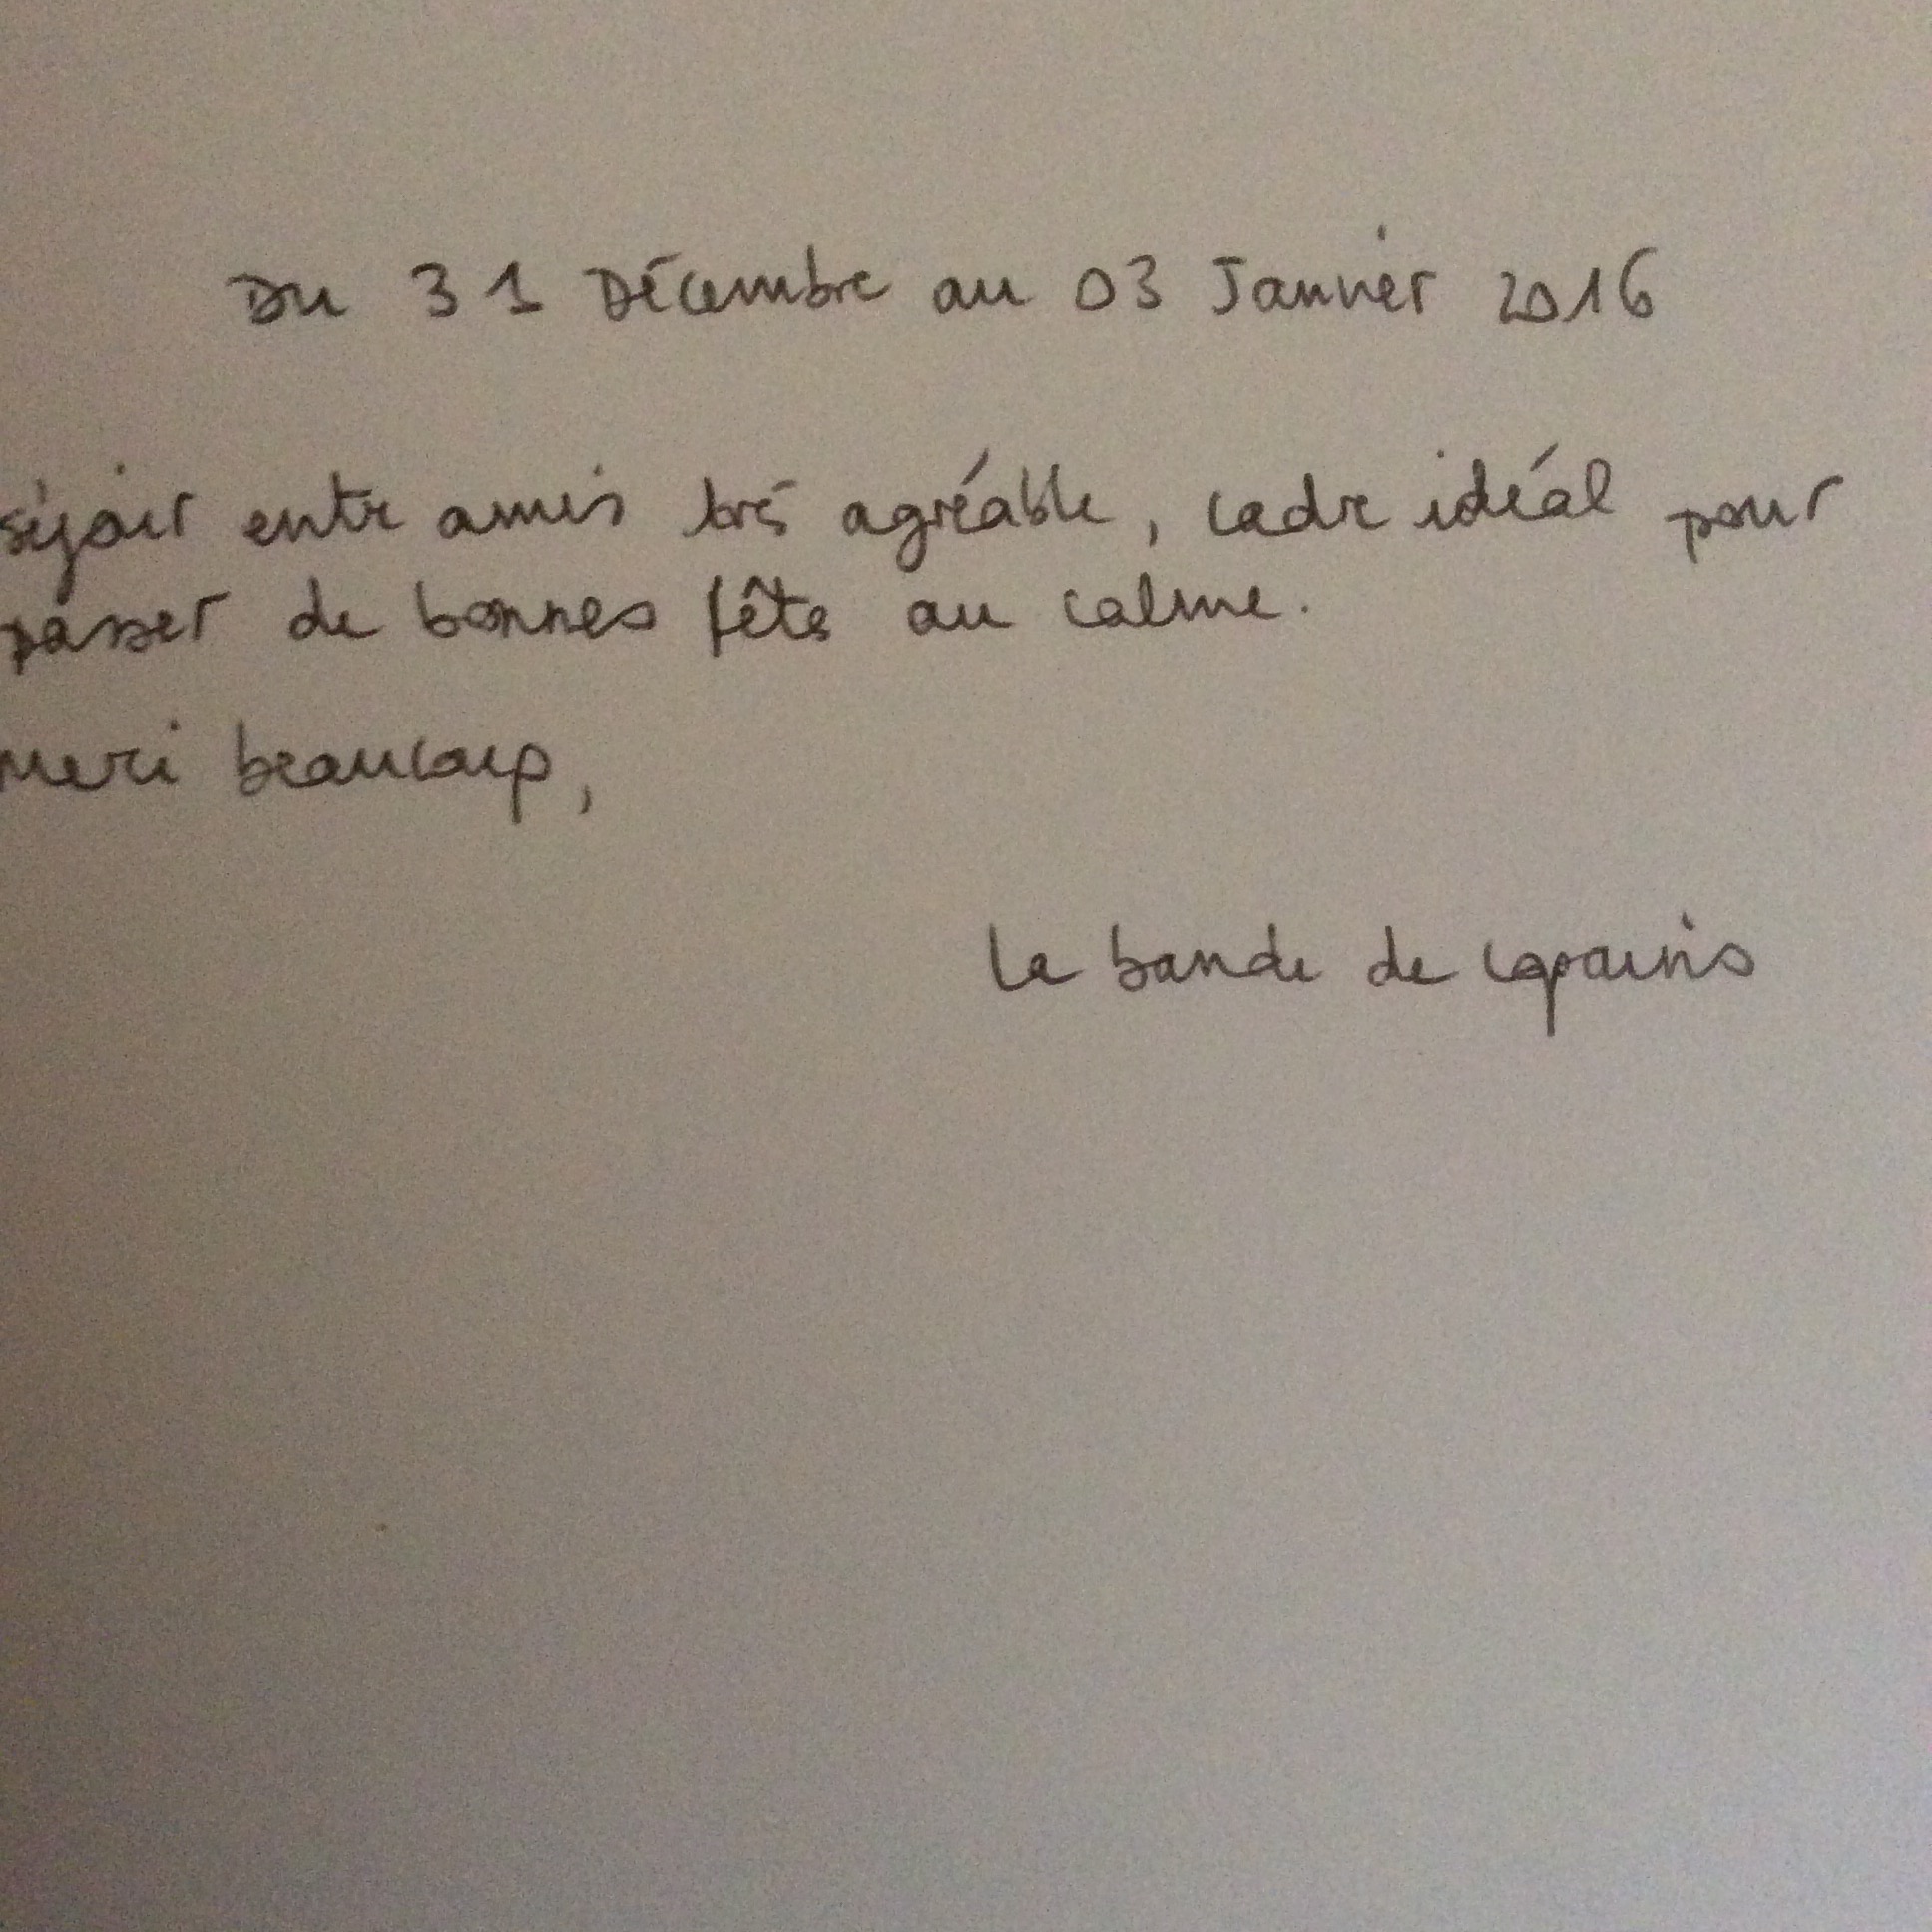 Du 31 Décembre au 03 Janvier 2016
séjour entre amis très agréable, cadre idéal pour
passer de bonnes fêtes au calme.
merci beaucoup,
la bande de copains